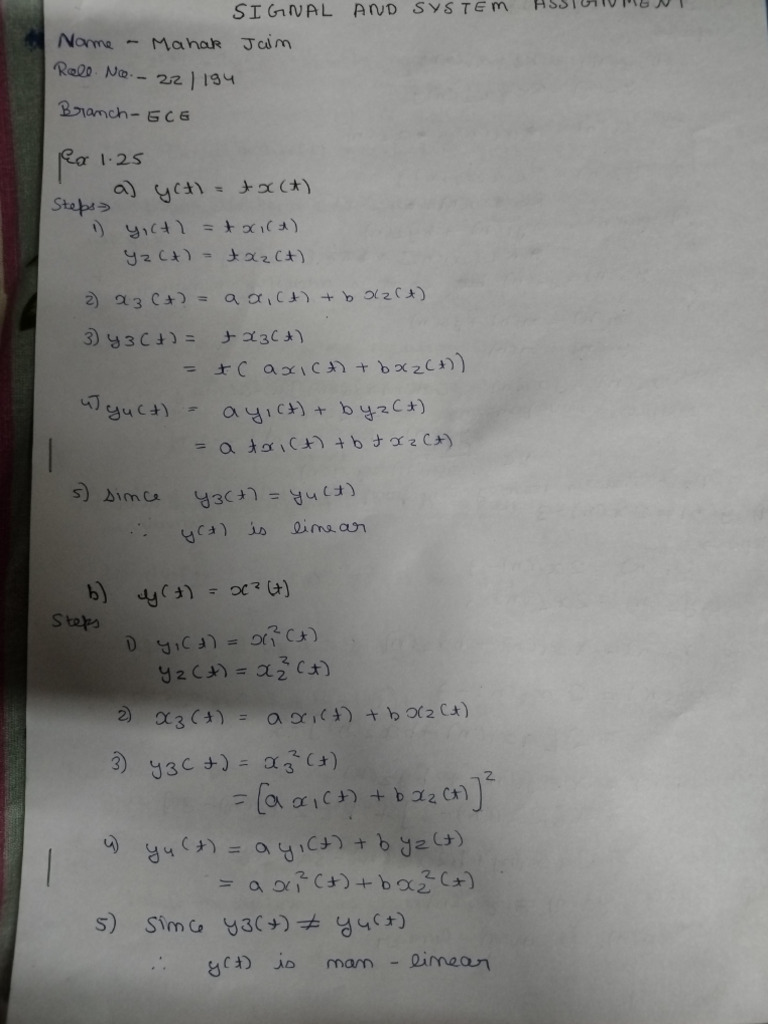 SIGNAL AND SYSTEM ASSIGNMENT
Name - Mahak Jain
Roll No. - 22/194
Branch - ECE
Ex 1.25
a) y(t) = t x(t)
Steps→
1) y₁(t) = t x₁(t)
y₂(t) = t x₂(t)
2) x₃(t) = a x₁(t) + b x₂(t)
3) y₃(t) = t x₃(t)
= t( a x₁(t) + b x₂(t))
4) y₄(t) = a y₁(t) + b y₂(t)
= a t x₁(t) + b t x₂(t)
5) Since y₃(t) = y₄(t)
∴ y(t) is linear
b) y(t) = x²(t)
Steps
1) y₁(t) = x₁²(t)
y₂(t) = x₂²(t)
2) x₃(t) = a x₁(t) + b x₂(t)
3) y₃(t) = x₃²(t)
= [a x₁(t) + b x₂(t)]²
4) y₄(t) = a y₁(t) + b y₂(t)
= a x₁²(t) + b x₂²(t)
5) Since y₃(t) ≠ y₄(t)
∴ y(t) is non - linear